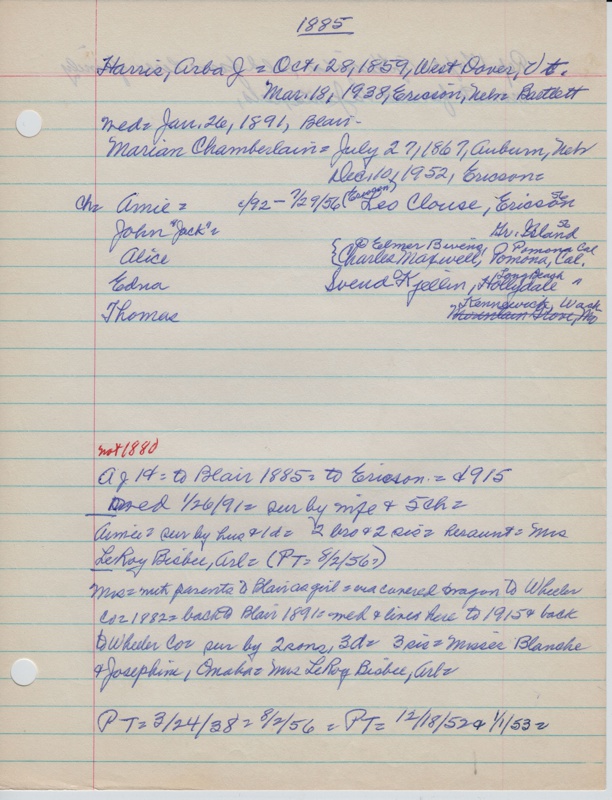 1885
Harris, Arba J = Oct. 28, 1859, West Dover, Vt.
Mar. 18, 1938, Ericson, Nebr = Bartlett
med = Jan. 26, 1891, Blair -
Marian Chamberlain = July 27, 1867, Auburn, Nebr
Dec. 10, 1952, Ericson =
ch = Amie = c/92 - 7/29/56 (Oregon) Leo Clouse, Ericson
John "Jack" = Gr. Island
Alice { Elmer Bivins, Pomona Cal
Charles Maxwell, Pomona, Cal.
Edna Svend Kjellin, Long Beach Hollydale "
Thomas Kennewick, Wash
Mountain Grove, Mo
not 1880
A J H = to Blair 1885 = to Ericson = c/1915
med 1/26/91 = sur by wife & 5 ch =
Aimie = sur by hus & 1 d = 2 bros & 2 sis = her aunt = Mrs
LeRoy Bisbee, Arl = (PT = 8/2/56 =)
Mrs = with parents to Blair as a girl = via covered wagon to Wheeler
Co = 1882 = back to Blair 1891 = med & lives here to 1915 & back
to Wheeler Co = sur by 2 sons, 3 d = 3 sis = Misses Blanche
& Josephine, Omaha = Mrs LeRoy Bisbee, Arl =
PT = 3/24/38 = 8/2/56 = PT = 12/18/52 & 1/1/53 =